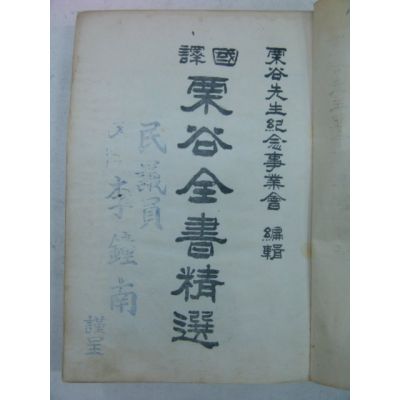 栗谷先生紀念事業會 編輯
國譯
栗谷全書精選
民議員
李鐘南
謹呈